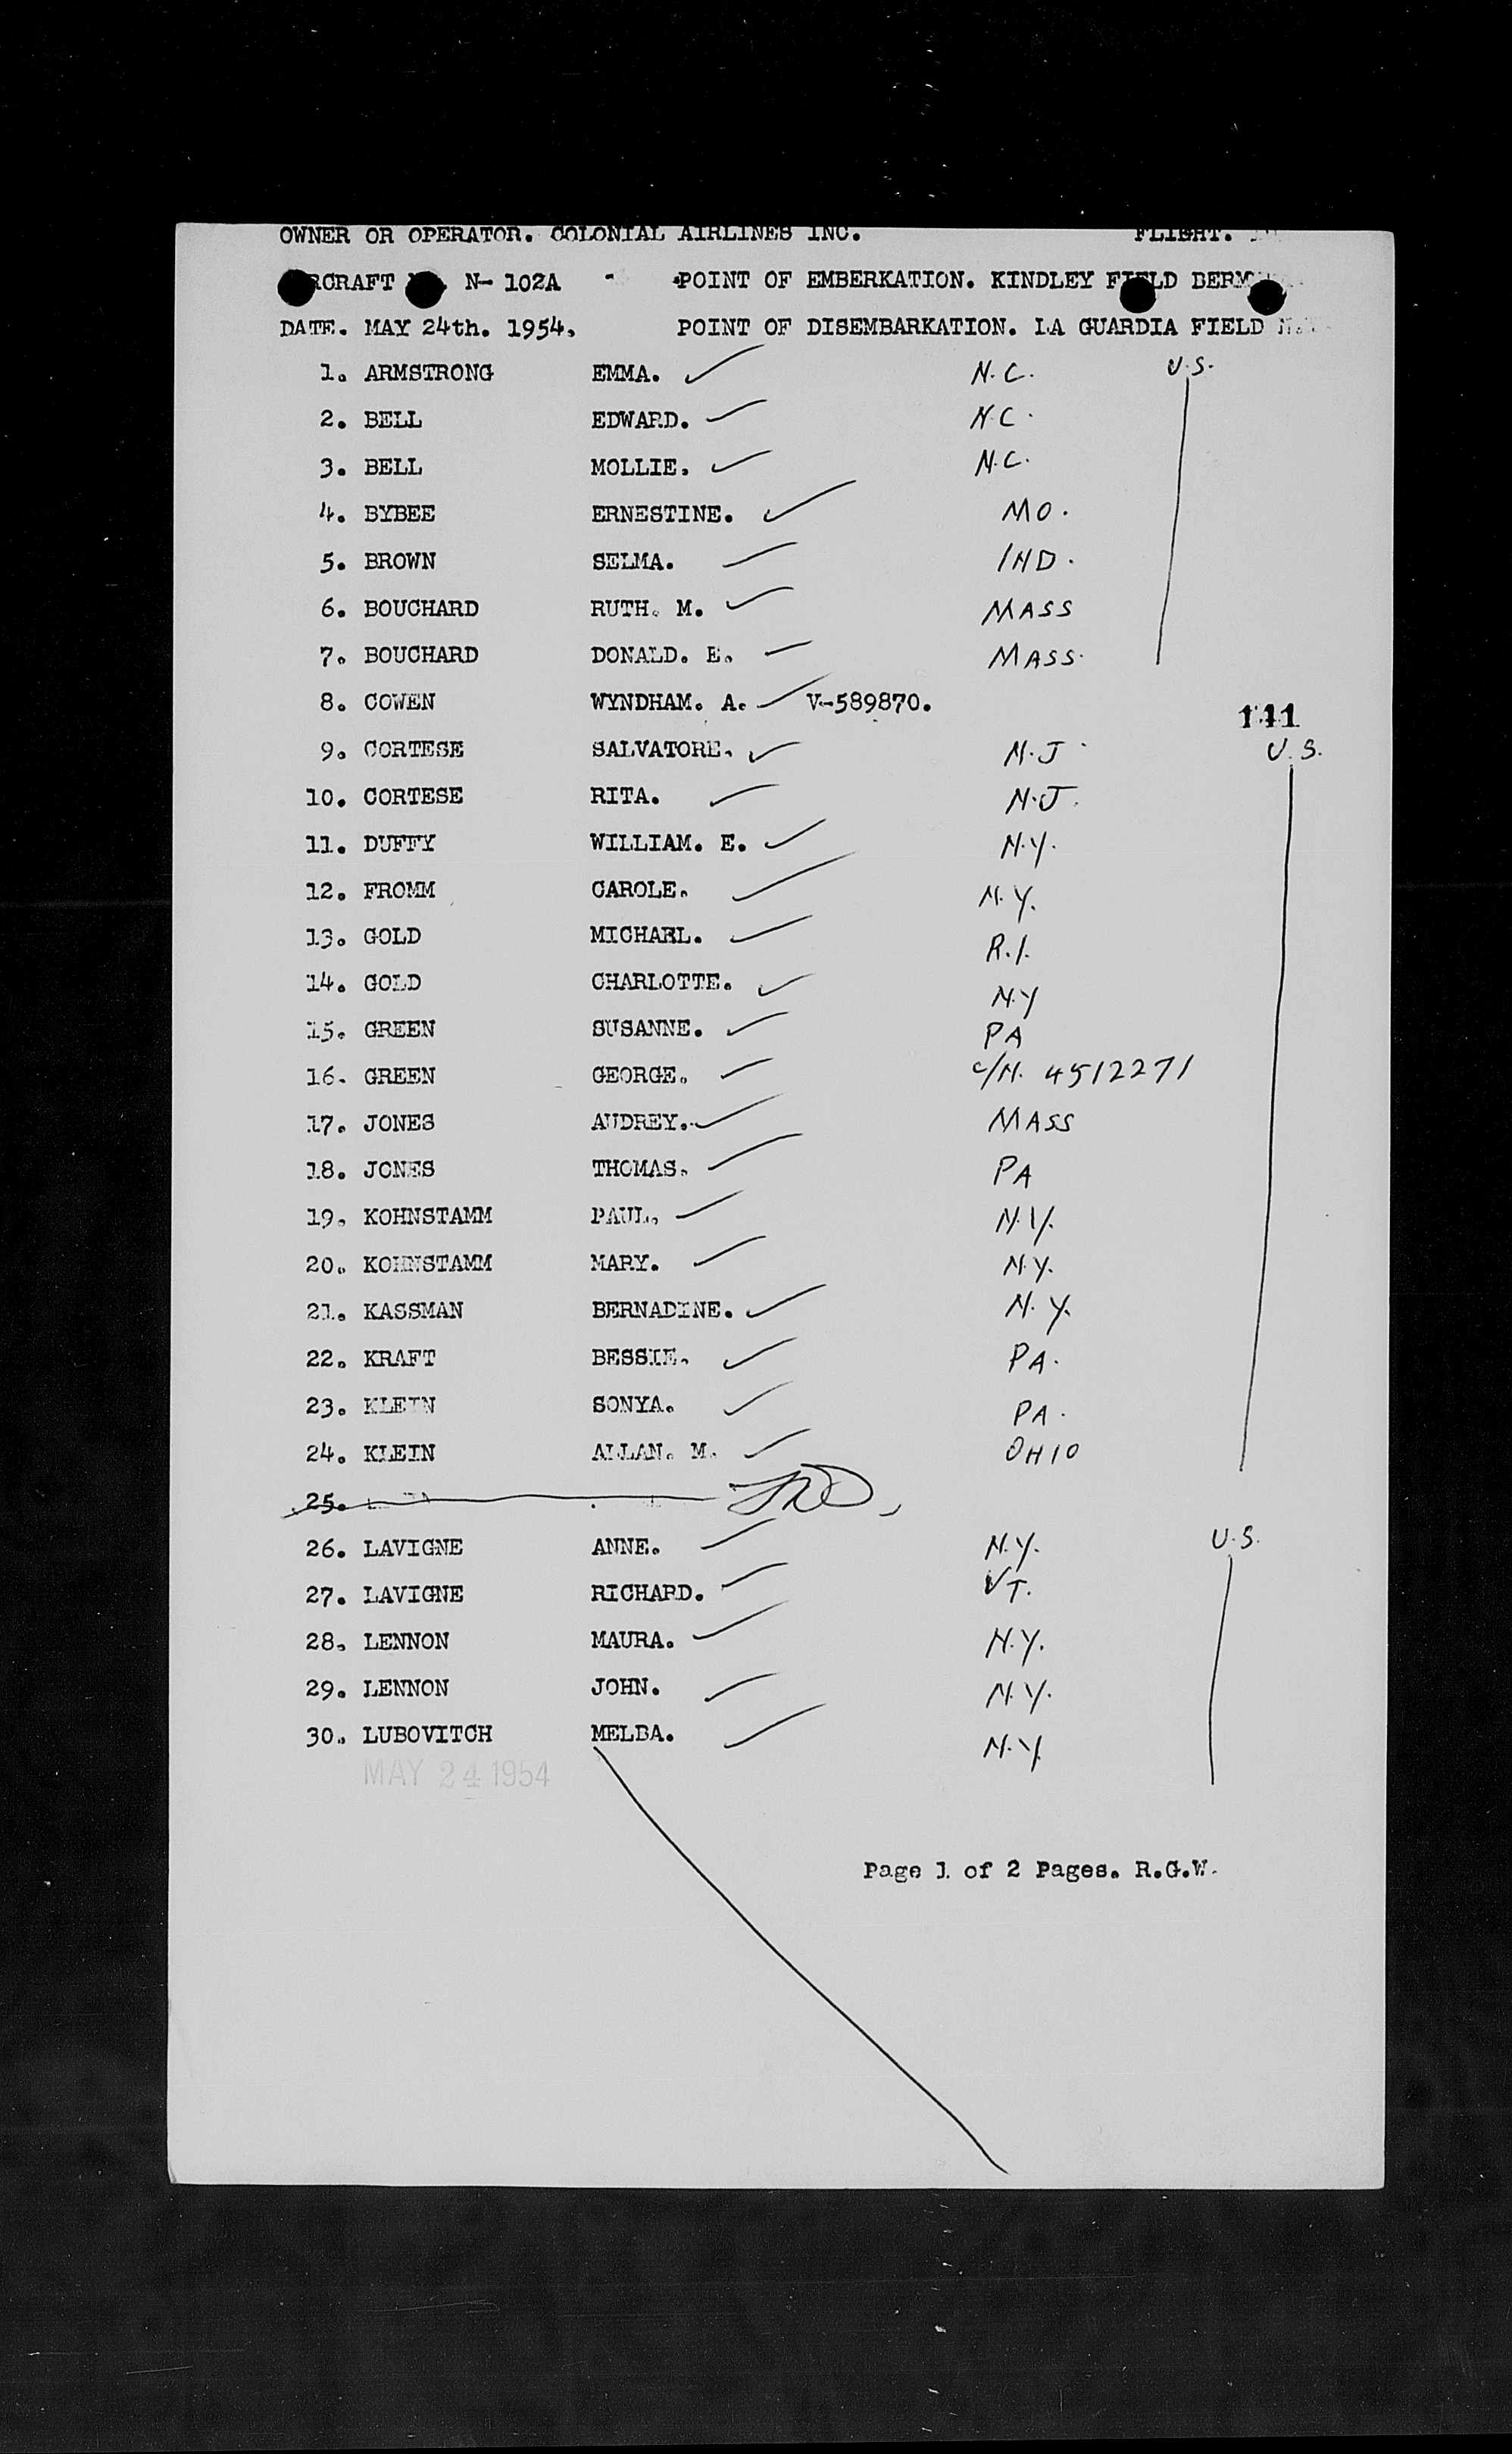 OWNER OR OPERATOR. COLONIAL AIRLINES INC. FLIGHT.
N- 102A POINT OF EMBERKATION. KINDLEY FIELD
DATE. MAY 24th. 1954. POINT OF DISEMBARKATION. LA GUARDIA FIELD
1. ARMSTRONG EMMA. N.C. U.S.
2. BELL EDWARD. N.C.
3. BELL MOLLIE. N.C.
4. BYBEE ERNESTINE. MO.
5. BROWN SELMA. IND.
6. BOUCHARD RUTH. M. MASS
7. BOUCHARD DONALD. E. MASS.
8. COWEN WYNDHAM. A. V-589870.
141
9. CORTESE SALVATORE. N.J U.S.
10. CORTESE RITA. N.J.
11. DUFFY WILLIAM. E. N.Y.
12. FROMM CAROLE. N.Y.
13. GOLD MICHAEL. R.I.
14. GOLD CHARLOTTE. N.Y
15. GREEN SUSANNE. PA
16. GREEN GEORGE. C/N. 4512271
17. JONES AUDREY. MASS
18. JONES THOMAS. PA
19. KOHNSTAMM PAUL. N.Y.
20. KOHNSTAMM MARY. N.Y.
21. KASSMAN BERNADINE. N.Y.
22. KRAFT BESSIE. PA.
23. KLEIN SONYA. PA.
24. KLEIN ALLAN. M. OHIO
25.
26. LAVIGNE ANNE. N.Y. U.S.
27. LAVIGNE RICHARD. VT.
28. LENNON MAURA. N.Y.
29. LENNON JOHN. N.Y.
30. LUBOVITCH MELBA. N.Y.
MAY 24 1954
Page 1 of 2 Pages. R.G.W.